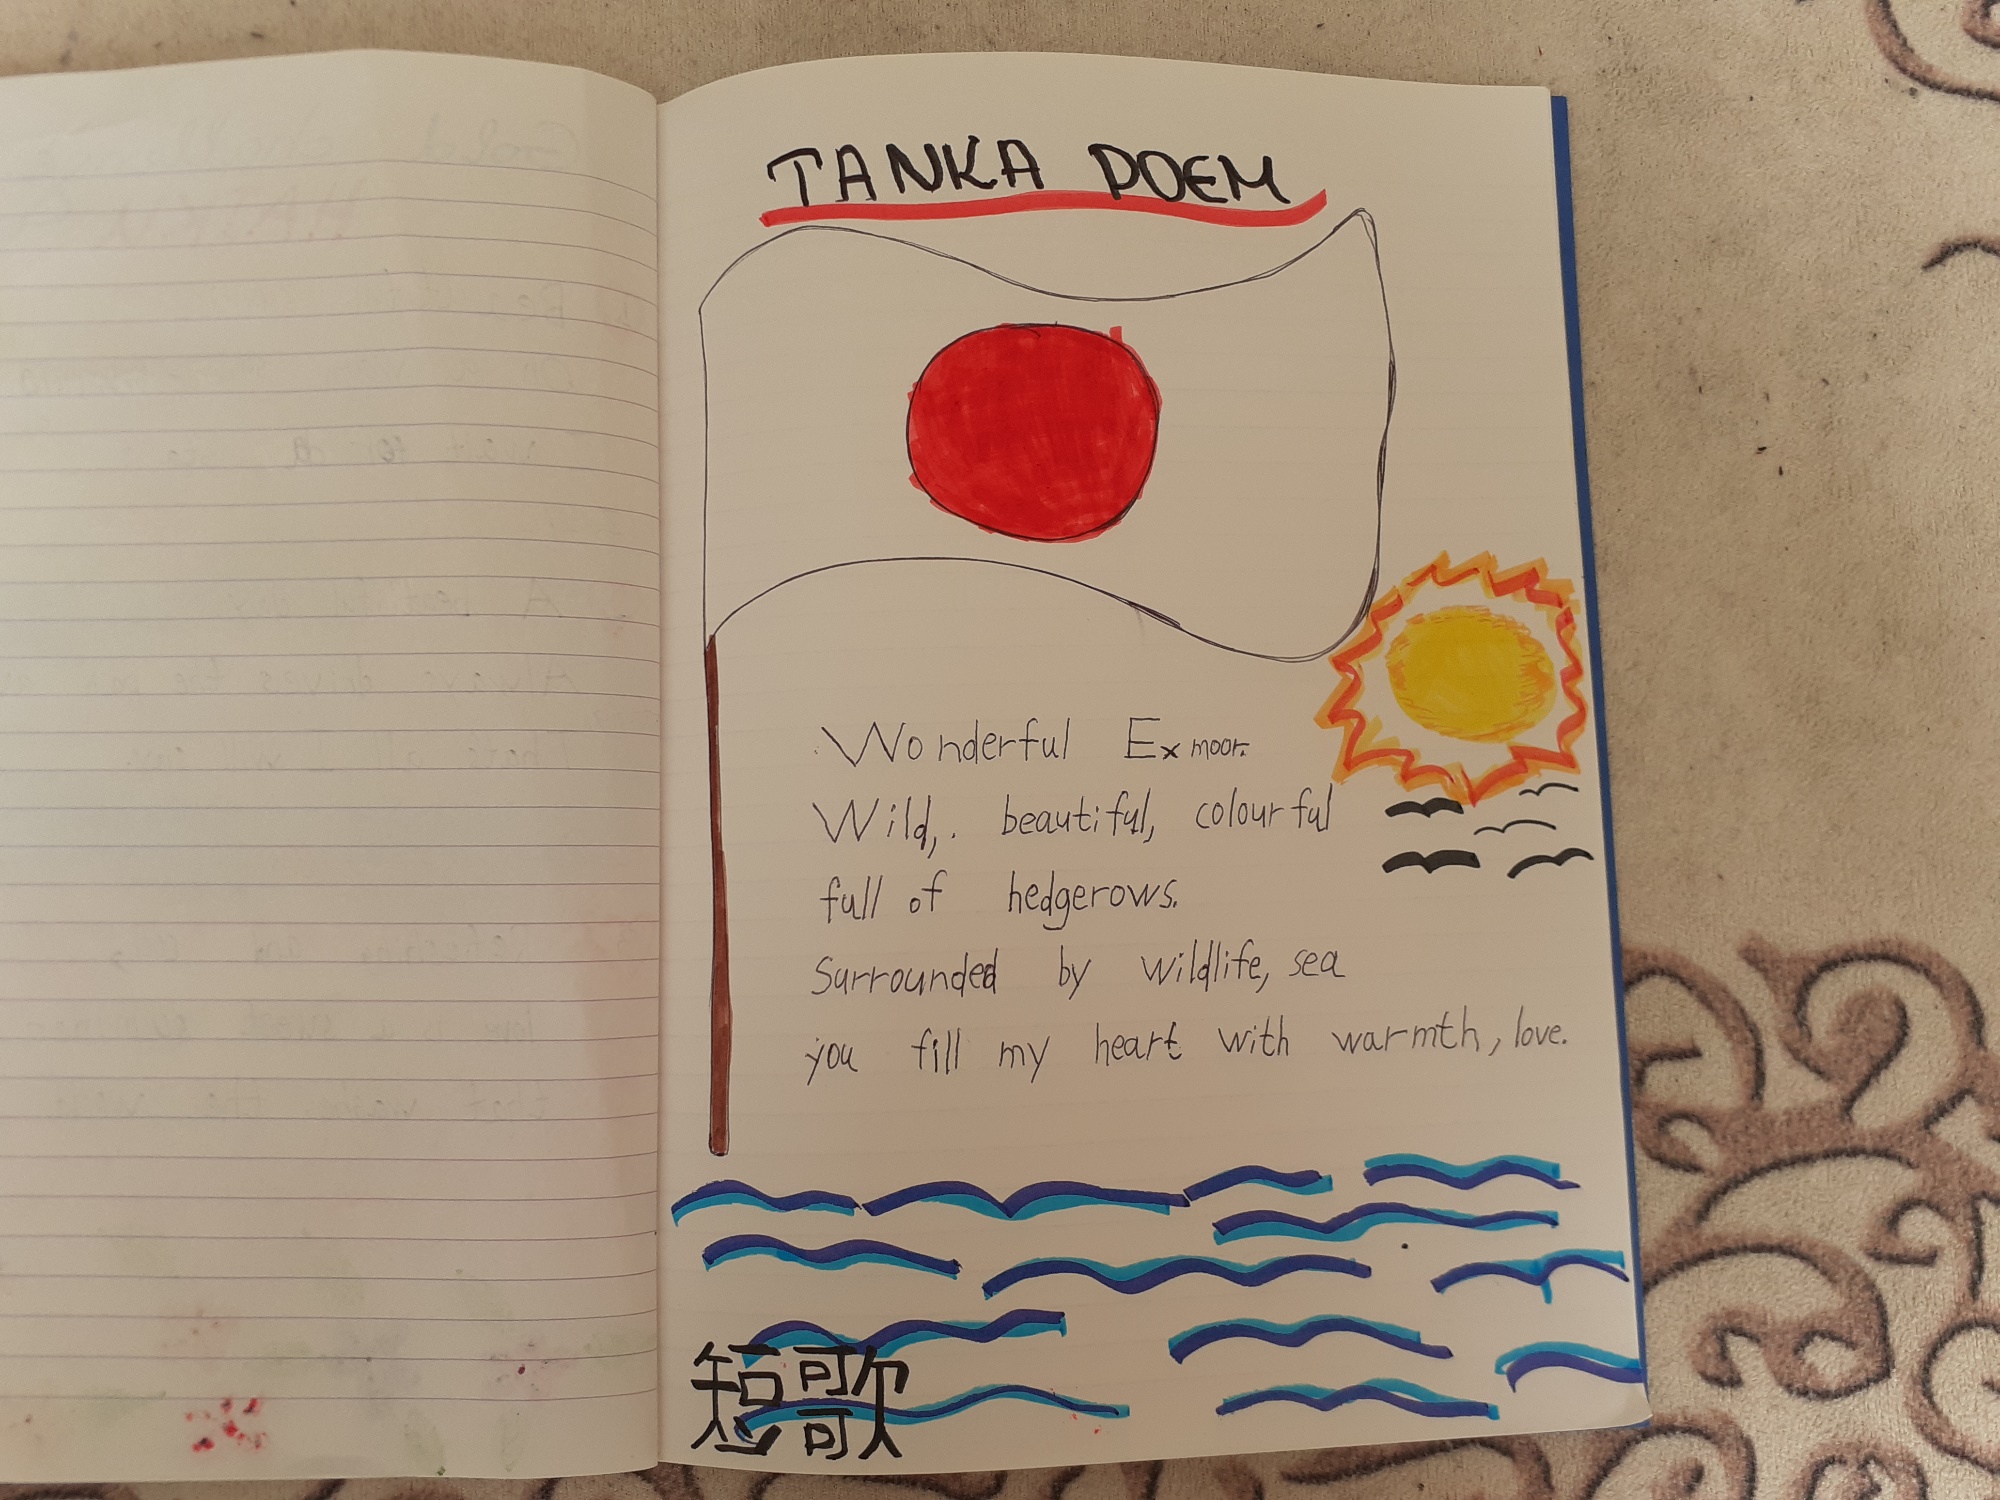 TANKA POEM
Wonderful Exmoor.
Wild, beautiful, colourful
full of hedgerows.
Surrounded by wildlife, sea
you fill my heart with warmth, love.
短歌